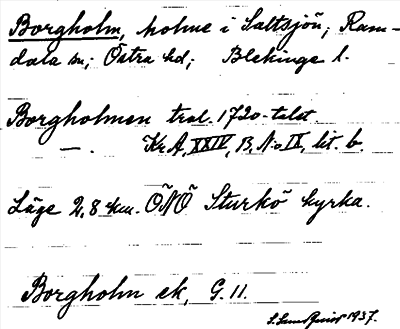 Borgholm, holme i Saltsjön, Ram-
dala sn; Östra hd; Blekinge l.
Borgholmen trol. 1720-talet.
—. Kr A, XXIV, B. No IX, lit. b.
Läge 2,8 km. ÖNÖ Sturkö kyrka.
Borgholm ek, G. 11.
1937.